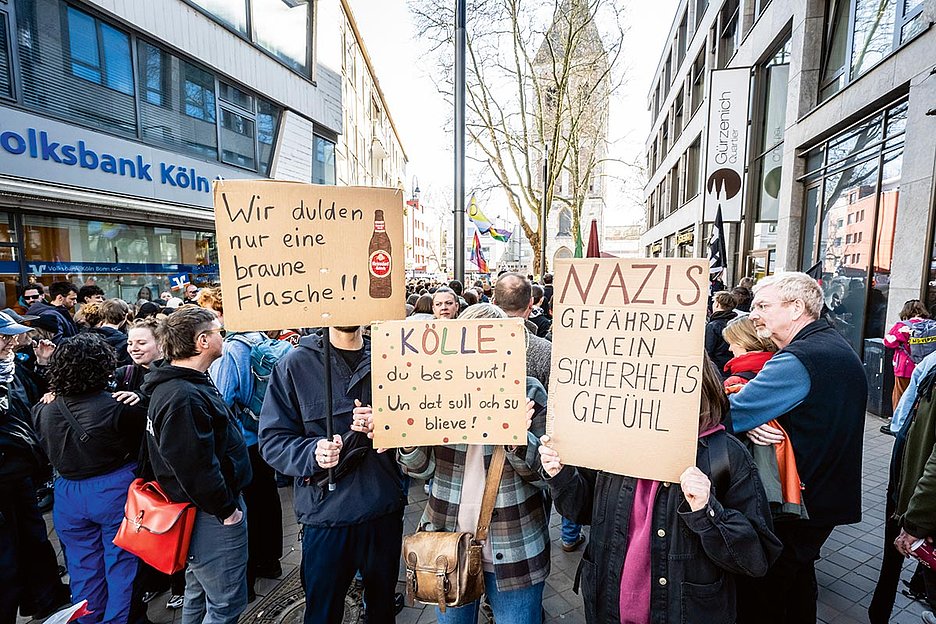 Volksbank Köln
Gürzenich
Quartier
Wir dulden
nur eine
braune
Flasche!!
KÖLLE
du bes bunt!
Un dat sull och su
blieve!
NAZIS
GEFÄHRDEN
MEIN
SICHERHEITS
GEFÜHL